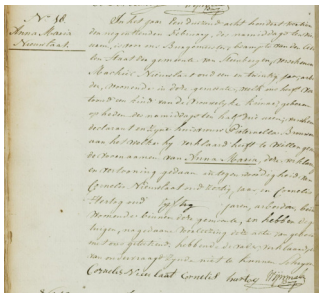 No 58.
Anna Maria
Nieuwlaat.
In het jaar een duizend acht honderd
den negentienden February, des namiddags ten
uure, is voor ons Burgemeester, beampte van den
len Staat der gemeente van
Nieuwlaat oud een en twintig jaar,
der, woonende in deze gemeente, welk ons heeft
toond een kind van de Vrouwelijke kunne, geboren
op heden des namiddags ten half drie uren, uit hem
declarant en zijne huisvrouw
aan het welke hij verklaard heeft te willen geven
de voornaamen van Anna Maria, deze verklaring
en vertooning gedaan in tegenwoordigheid van
Cornelis Nieuwlaat oud dertig jaar en Cornelis
Hertog oud vijftig jaren, arbeiders, beide
woonende binnen deze gemeente, en hebben de
getuigen, na gedaane voorlezing deze acte van geboorte
met ons geteekend, hebbende de vader verklaard
van te kunnen schrijven
Cornelis Nieu Laat Cornelis